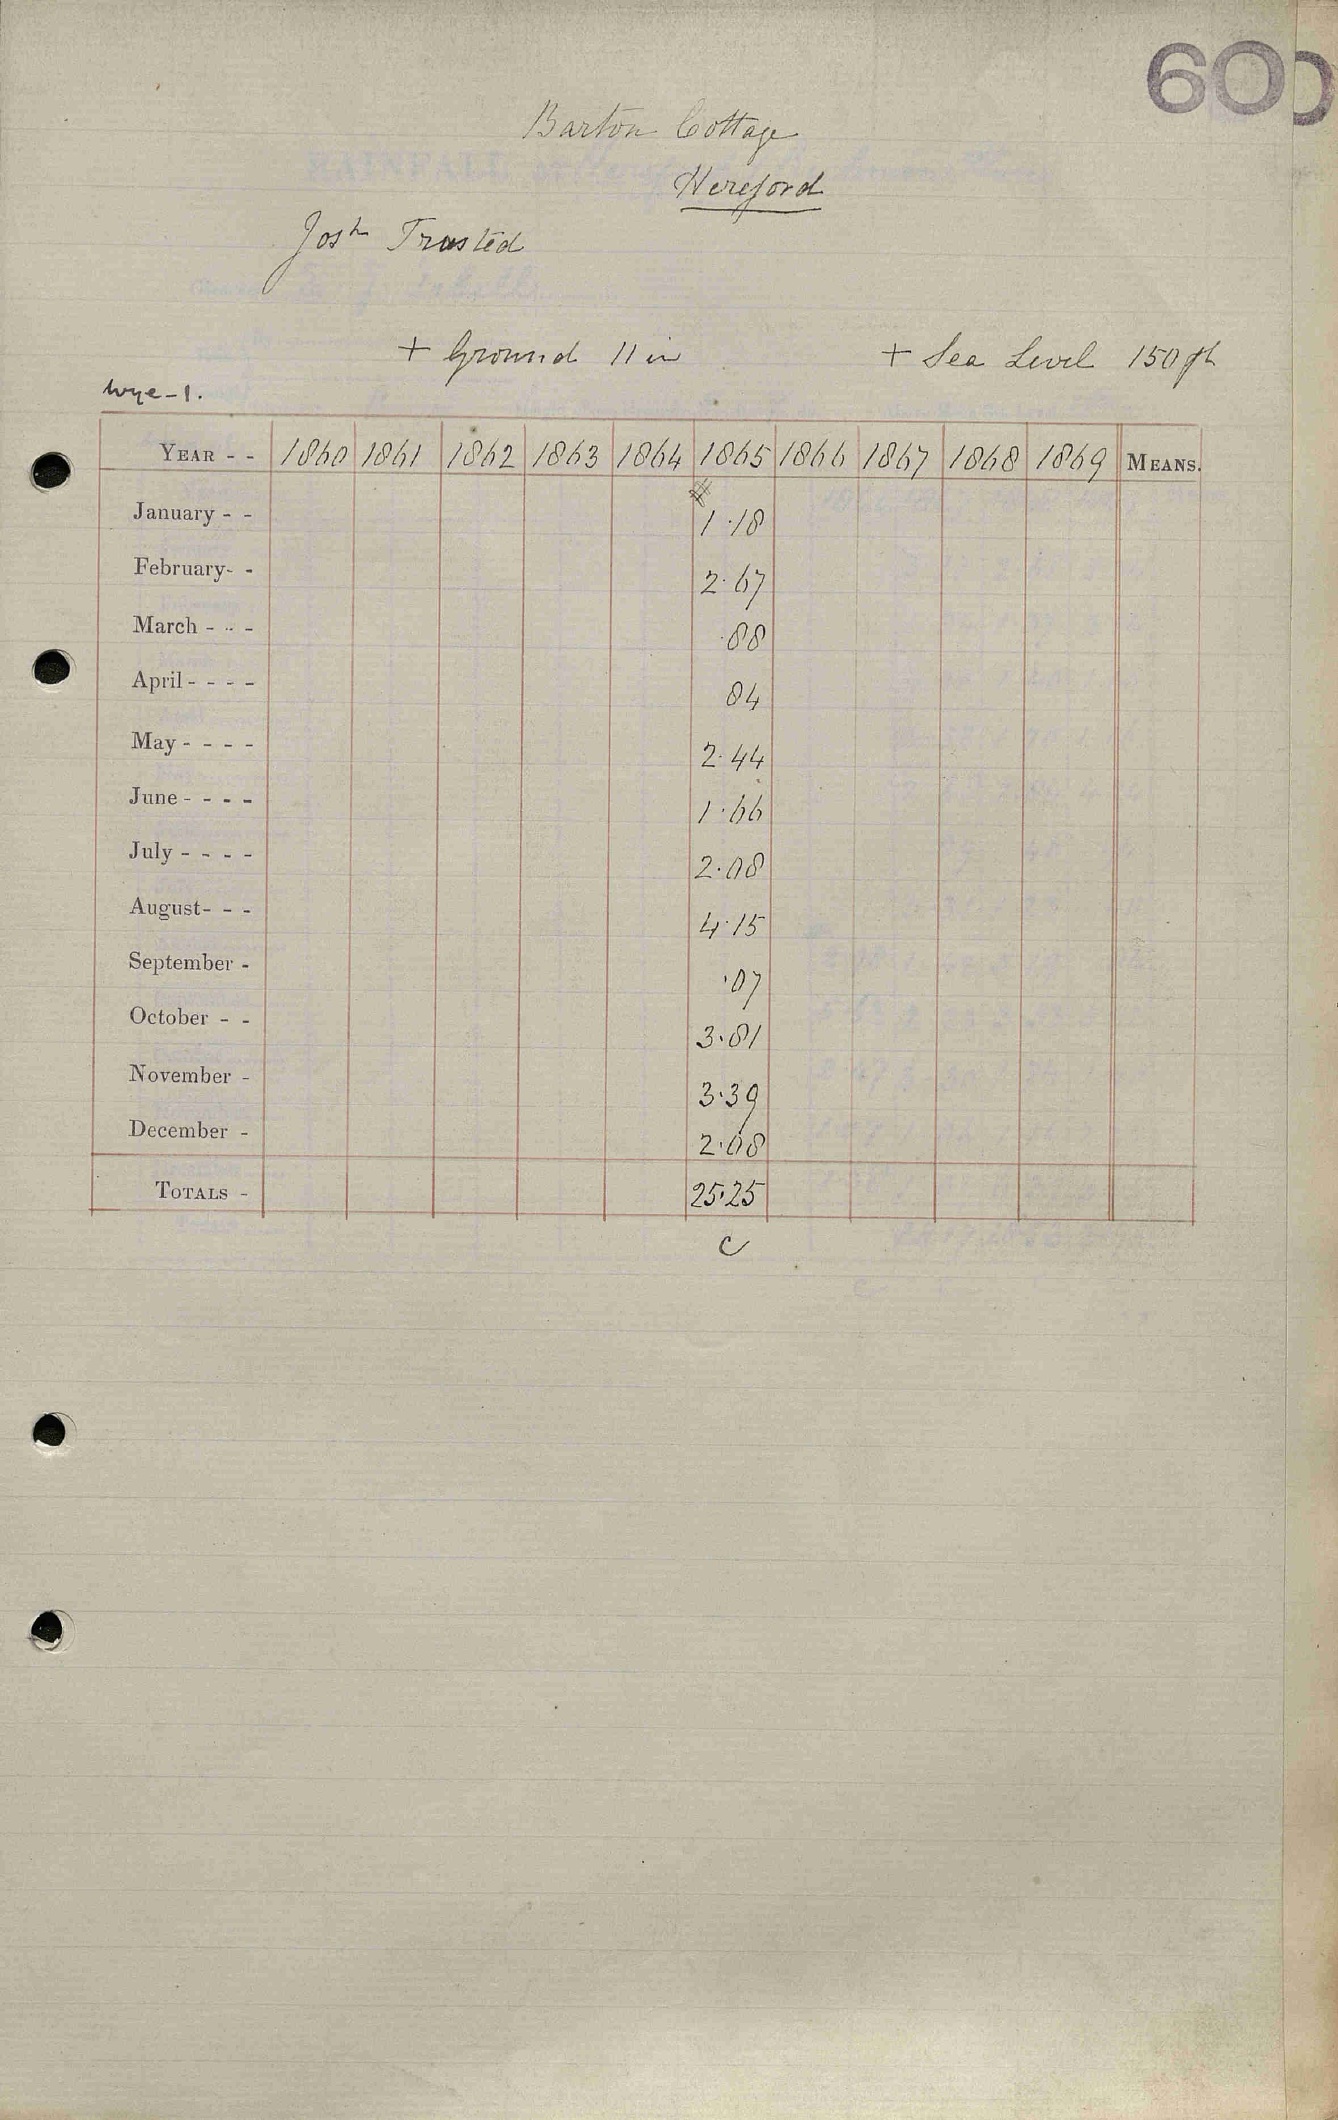 600
Barton Cottage
Hereford
Josh Trusted
+ Ground 11 in + Sea Level 150 ft
Wye-1.
YEAR - - 1860 1861 1862 1863 1864 1865 1866 1867 1868 1869 MEANS.
January - - 1.18
February- - 2.67
March - - - .88
April - - - - 84
May - - - - 2.44
June - - - - 1.66
July - - - - 2.08
August- - - 4.15
September - .07
October - - 3.81
November - 3.39
December - 2.08
TOTALS - 25.25
C